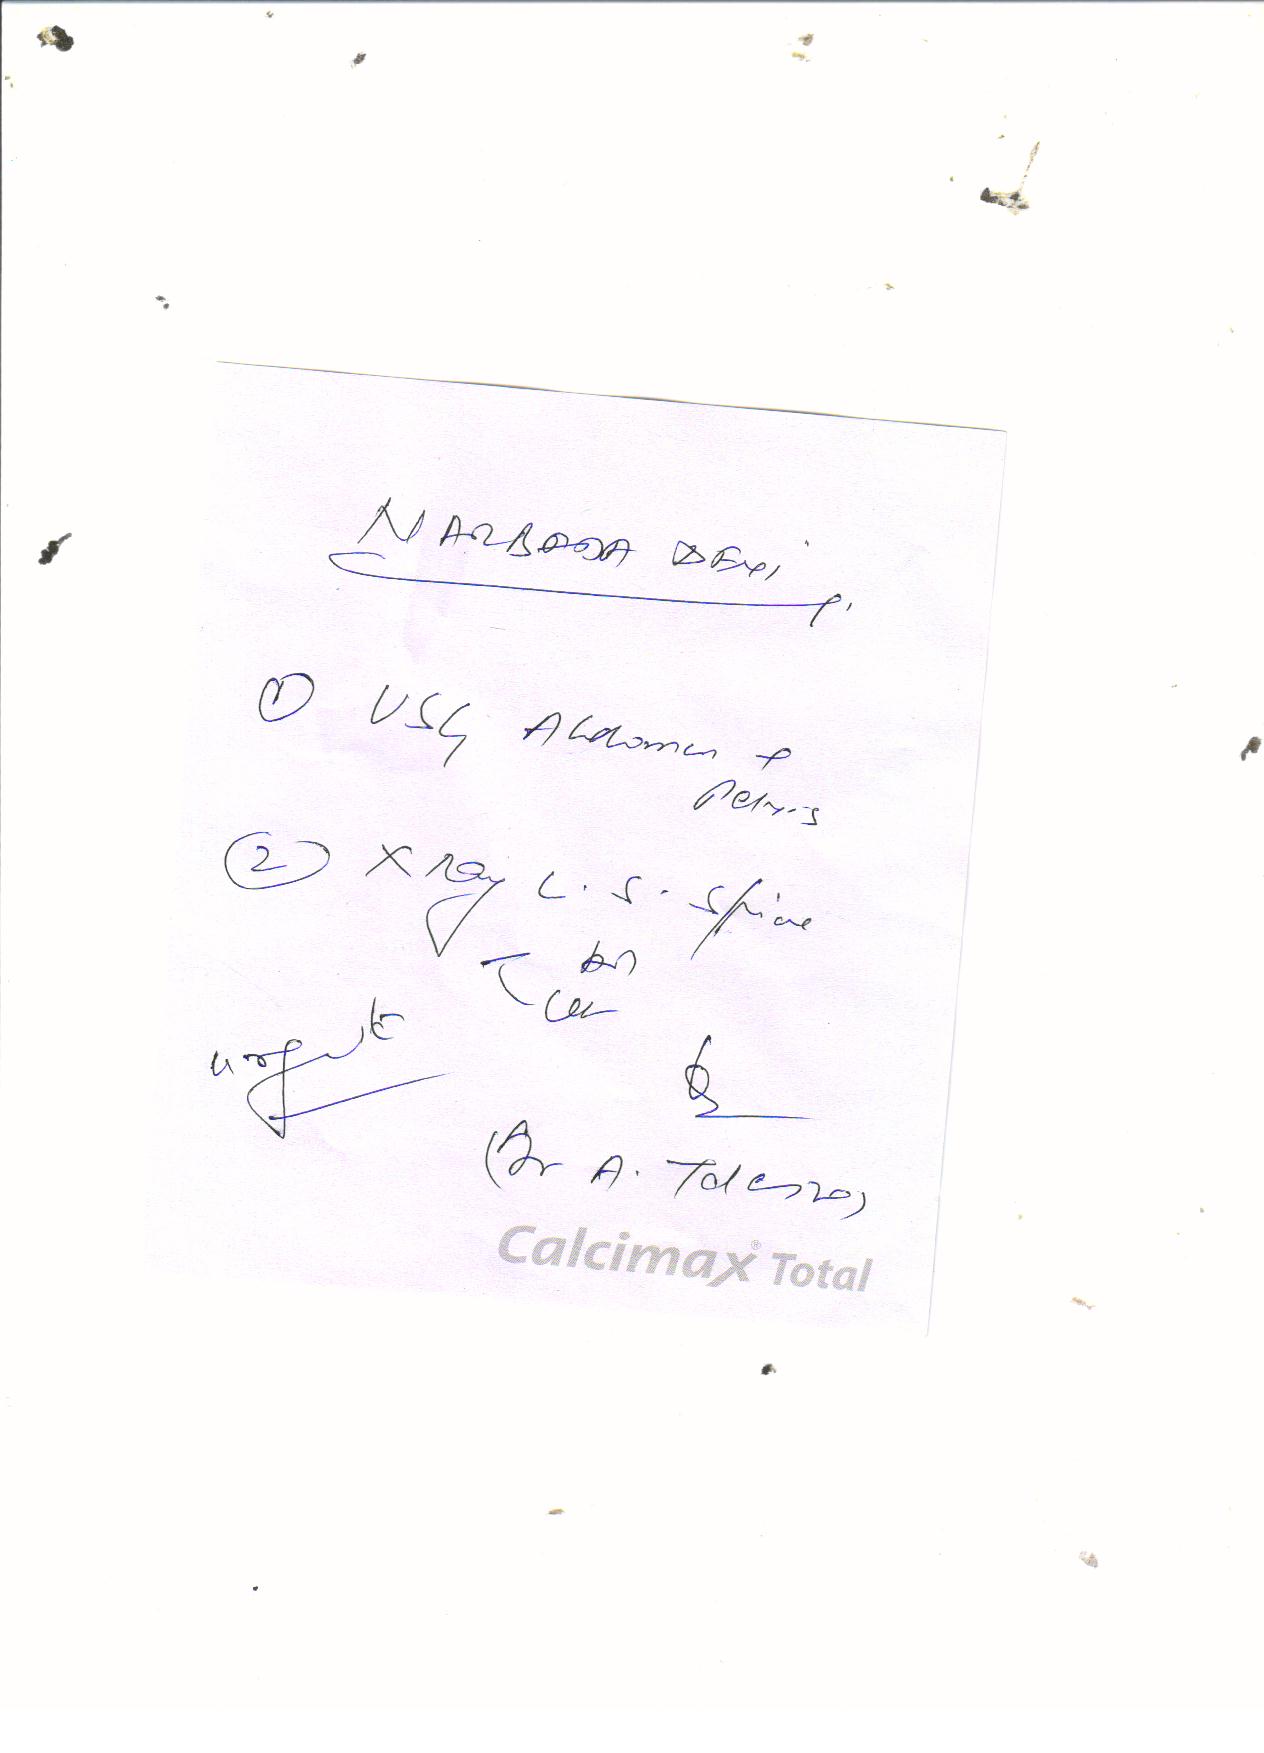 NARBADA DEVI
① USG Abdomen +
Pelvis
② X Ray L. S. Spine
AP
Lat
urgent
(Dr A.
Calcimax® Total